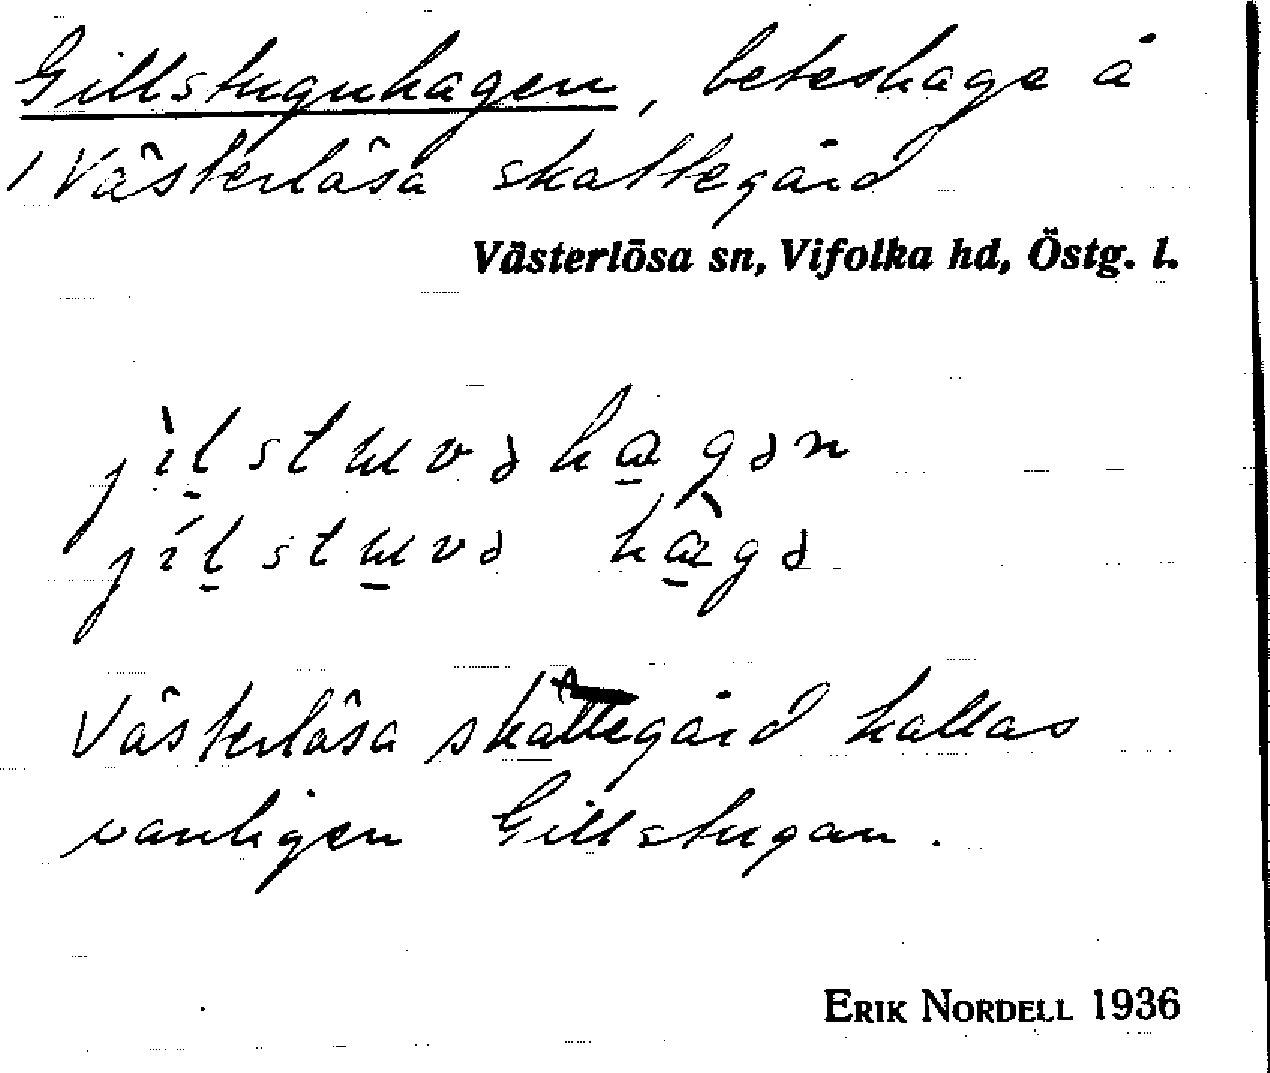 Gillstugnhagen, beteshage å
/ Västerlösa skattegård
Västerlösa sn, Vifolka hd, Östg. l.
jìl̠stuvəha̠gən
jíl̠stu̠və hà̠gə
Västerlösa skattegård kallas
vanligen Gillstugan.
ERIK NORDELL 1936